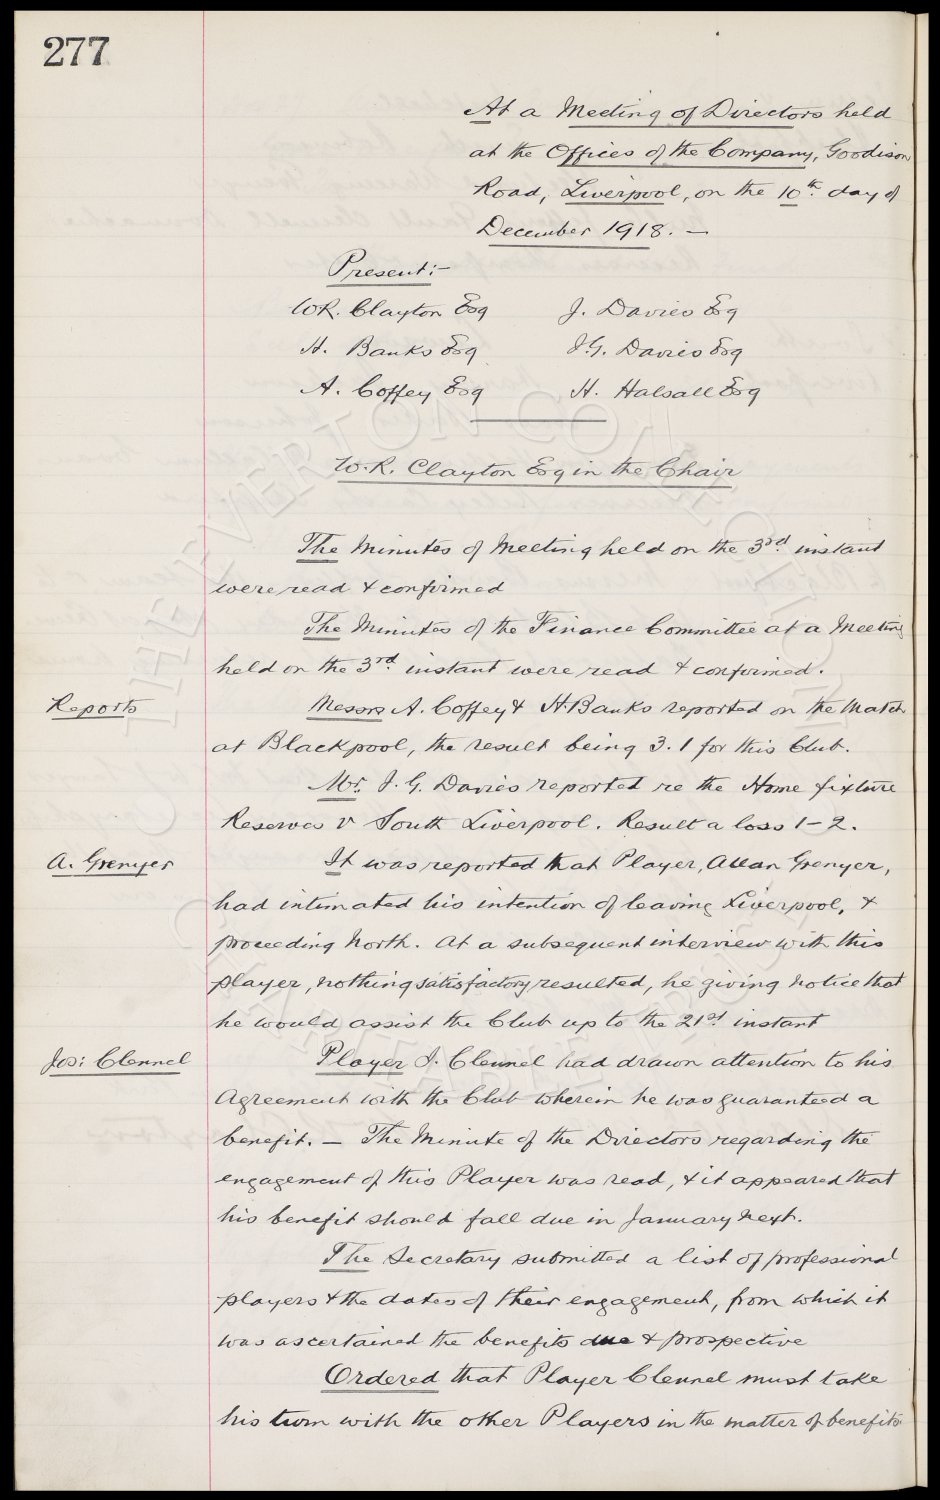 277
At a Meeting of Directors held
at the Offices of the Company, Goodison
Road, Liverpool, on the 10th. day of
December 1918. —
Present:-
W.R. Clayton Esq J. Davies Esq
H. Banks Esq J.G. Davies Esq
A. Coffey Esq H. Halsall Esq
W.R. Clayton Esq in the Chair
The Minutes of Meeting held on the 3rd. instant
were read & confirmed
The Minutes of the Finance Committee at a Meeting
held on the 3rd. instant were read & confirmed.
Reports
Messrs A. Coffey & H. Banks reported on the Match
at Blackpool, the result being 3.1 for this Club.
Mr. J. G. Davies reported re the Home fixture
Reserves v South Liverpool. Result a loss 1-2.
A. Grenyer
It was reported that Player, Allan Grenyer,
had intimated his intention of leaving Liverpool, &
proceeding North. At a subsequent interview with this
player, nothing satisfactory resulted, he giving notice that
he would assist the Club up to the 21st. instant
Jos: Clennel
Player J. Clennel had drawn attention to his
Agreement with the Club wherein he was guaranteed a
benefit. — The Minute of the Directors regarding the
engagement of this Player was read, & it appeared that
his benefit should fall due in January next.
The Secretary submitted a list of professional
players & the dates of their engagement, from which it
was ascertained the benefits due & prospective
Ordered that Player Clennel must take
his turn with the other Players in the matter of benefits.
THE EVERTON COLLECTION